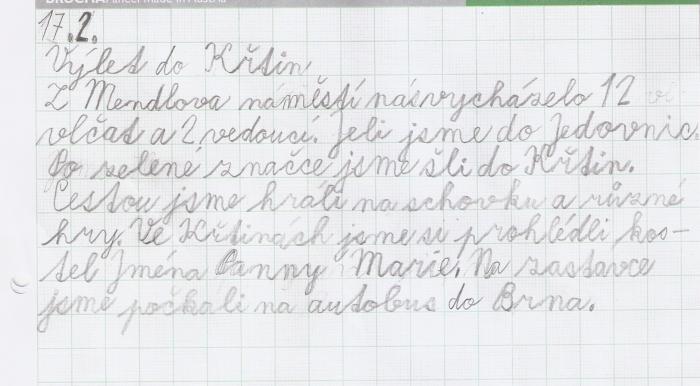 17.2.
Výlet do Křtin.
Z Mendlova náměstí nás vycházelo 12
vlčat a 2 vedoucí. Jeli jsme do Jedovnic.
Po zelené značce jsme šli do Křtin.
Cestou jsme hráli na schovku a různé
hry. Ve Křtinách jsme si prohlédli kos-
tel Jména Panny Marie. Na zastavce
jsme počkali na autobus do Brna.